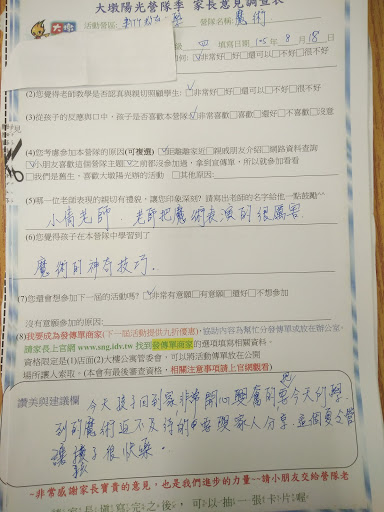 大墩陽光營隊季 家長意見調查表
大墩
活動營區: 營隊名稱: 魔術
四 填寫日期 105年8月18日
□非常好□好□還可以□不好□很不好
(2)您覺得老師教學是否認真與親切照顧學生: □非常好□好□還可以□不好□很不好
(3)從孩子的反應與口中,孩子是否喜歡本營隊 □非常喜歡□喜歡□還好□不喜歡□沒意
(4)您考慮參加本營隊的原因(可複選) □距離離家近□親戚朋友介紹□網路資料查詢
□小朋友喜歡這個營隊主題□之前都沒參加過,拿到宣傳單,所以就參加看看
□我們是舊生,喜歡大墩陽光辦的活動 □其他原因:
(5)哪一位老師表現的親切有禮貌,讓您印象深刻?請寫出老師的名字給他一點鼓勵^^
小倩老師. 老師把魔術表演的很厲害
(6)您覺得孩子在本營隊中學習到了
魔術的神奇技巧.
(7)您還會想參加下一屆的活動嗎? □非常有意願□有意願□還好□不想參加
沒有意願參加的原因:
(8)我要成為發傳單商家(下一屆活動提供九折優惠),協助內容為幫忙分發傳單或放在辦公室,
請家長上官網 www.sng.idv.tw 找到發傳單商家的選項填寫相關資料。
資格限定是(1)店面(2)大樓公寓管委會,可以將活動傳單放在公開
場所讓人索取。(本會有最後審查資格,相關注意事項請上官網觀看)
讚美與建議欄
今天孩子回到家,非常開心興奮的把今天的學
到的魔術迫不及待的要跟家人分享,這個夏令營
讓孩子很快樂.
~非常感謝家長寶貴的意見,也是我們進步的力量~~請小朋友交給營隊老
家長填寫完之後,可以抽一張卡片喔